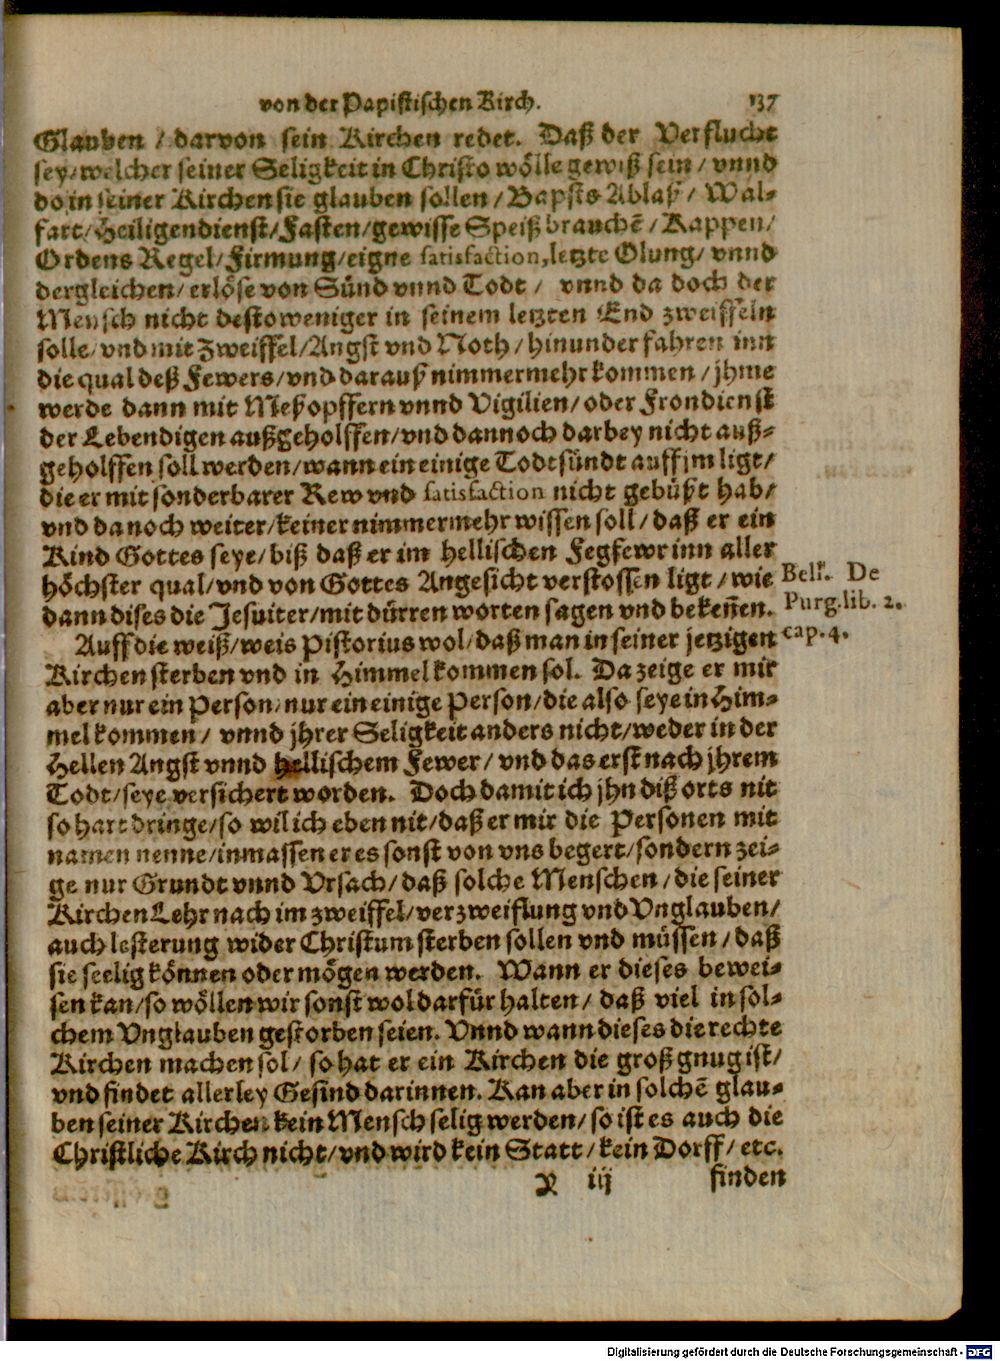 von der Papistischen Kirch. 137
Glauben / darvon sein Kirchen redet. Daß der Verflucht
sey/welcher seiner Seligkeit in Christo wölle gewiß sein / vnnd
do in seiner Kirchen sie glauben sollen / Bapsts Ablaß / Wal-
fart/Heiligendienst/Fasten/gewisse Speiß brauchẽ / Kappen/
Ordens Regel/Firmung/eigne satisfaction, letzte Olung/ vnnd
dergleichen/ erlöse von Sünd vnnd Todt / vnnd da doch der
Mensch nicht destoweniger in seinem letzten End zweiffeln
solle/vnd mit Zweiffel/Angst vnd Noth/hinunder fahren inn
die qual deß Fewers/vnd darauß nimmermehr kommen / jhme
werde dann mit Meßopffern vnnd Vigilien/oder Frondienst
der Lebendigen außgeholffen/vnd dannoch darbey nicht auß-
geholffen soll werden/wann ein einige Todtsündt auff jm ligt/
die er mit sonderbarer Rew vnd satisfaction nicht gebüßt hab/
vnd da noch weiter/keiner nimmermehr wissen soll/daß er ein
Kind Gottes seye/biß daß er im hellischen Fegfewr inn aller
höchster qual/vnd von Gottes Angesicht verstossen ligt/wie
dann dises die Jesuiter/mit dürren worten sagen vnd bekeñen.
Bell. De
Purg. lib. 2.
cap. 4.
Auff die weiß/weis Pistorius wol/daß man in seiner jetzigen
Kirchen sterben vnd in Himmel kommen sol. Da zeige er mir
aber nur ein Person/nur ein einige Person/die also seye in Him-
mel kommen/ vnnd jhrer Seligkeit anders nicht/weder in der
Hellen Angst vnnd hellischem Fewer/ vnd das erst nach jhrem
Todt/seye versichert worden. Doch damit ich jhn diß orts nit
so hart dringe/so wil ich eben nit/daß er mir die Personen mit
namen nenne/inmassen er es sonst von vns begert/sondern zei-
ge nur Grundt vnnd Vrsach/daß solche Menschen/die seiner
Kirchen Lehr nach im zweiffel/verzweiflung vnd Vnglauben/
auch lesterung wider Christum sterben sollen vnd müssen/daß
sie seelig können oder mögen werden. Wann er dieses bewei-
sen kan/so wöllen wir sonst wol darfür halten/ daß viel in sol-
chem Vnglauben gestorben seien. Vnnd wann dieses die rechte
Kirchen machen sol/ so hat er ein Kirchen die groß gnug ist/
vnd findet allerley Gesind darinnen. Kan aber in solchẽ glau-
ben seiner Kirchen kein Mensch selig werden/so ist es auch die
Christliche Kirch nicht/vnd wird kein Statt/kein Dorff/etc.
X iij finden
Digitalisierung gefördert durch die Deutsche Forschungsgemeinschaft - DFG